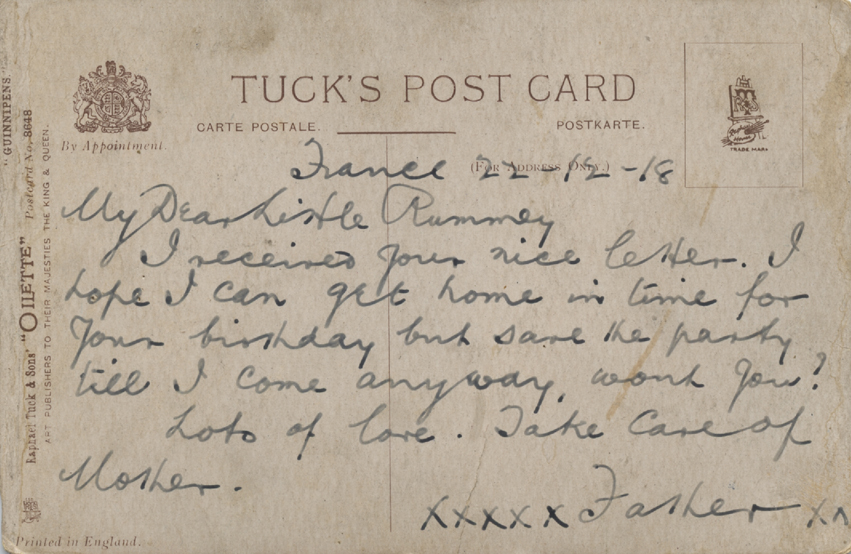 TUCK'S POST CARD
CARTE POSTALE.
POSTKARTE.
(FOR ADDRESS ONLY.)
By Appointment.
TRADE MARK
"GUINNIPENS."
Raphael Tuck & Sons' "OILETTE" Postcard No. 8648
ART PUBLISHERS TO THEIR MAJESTIES THE KING & QUEEN.
France 22-12-18
My Dear Little Rummey
I received your nice letter. I
hope I can get home in time for
your birthday but save the party
till I come anyway, wont you?
Lots of love. Take Care of
Mother.
xxxxx Father xx
Printed in England.